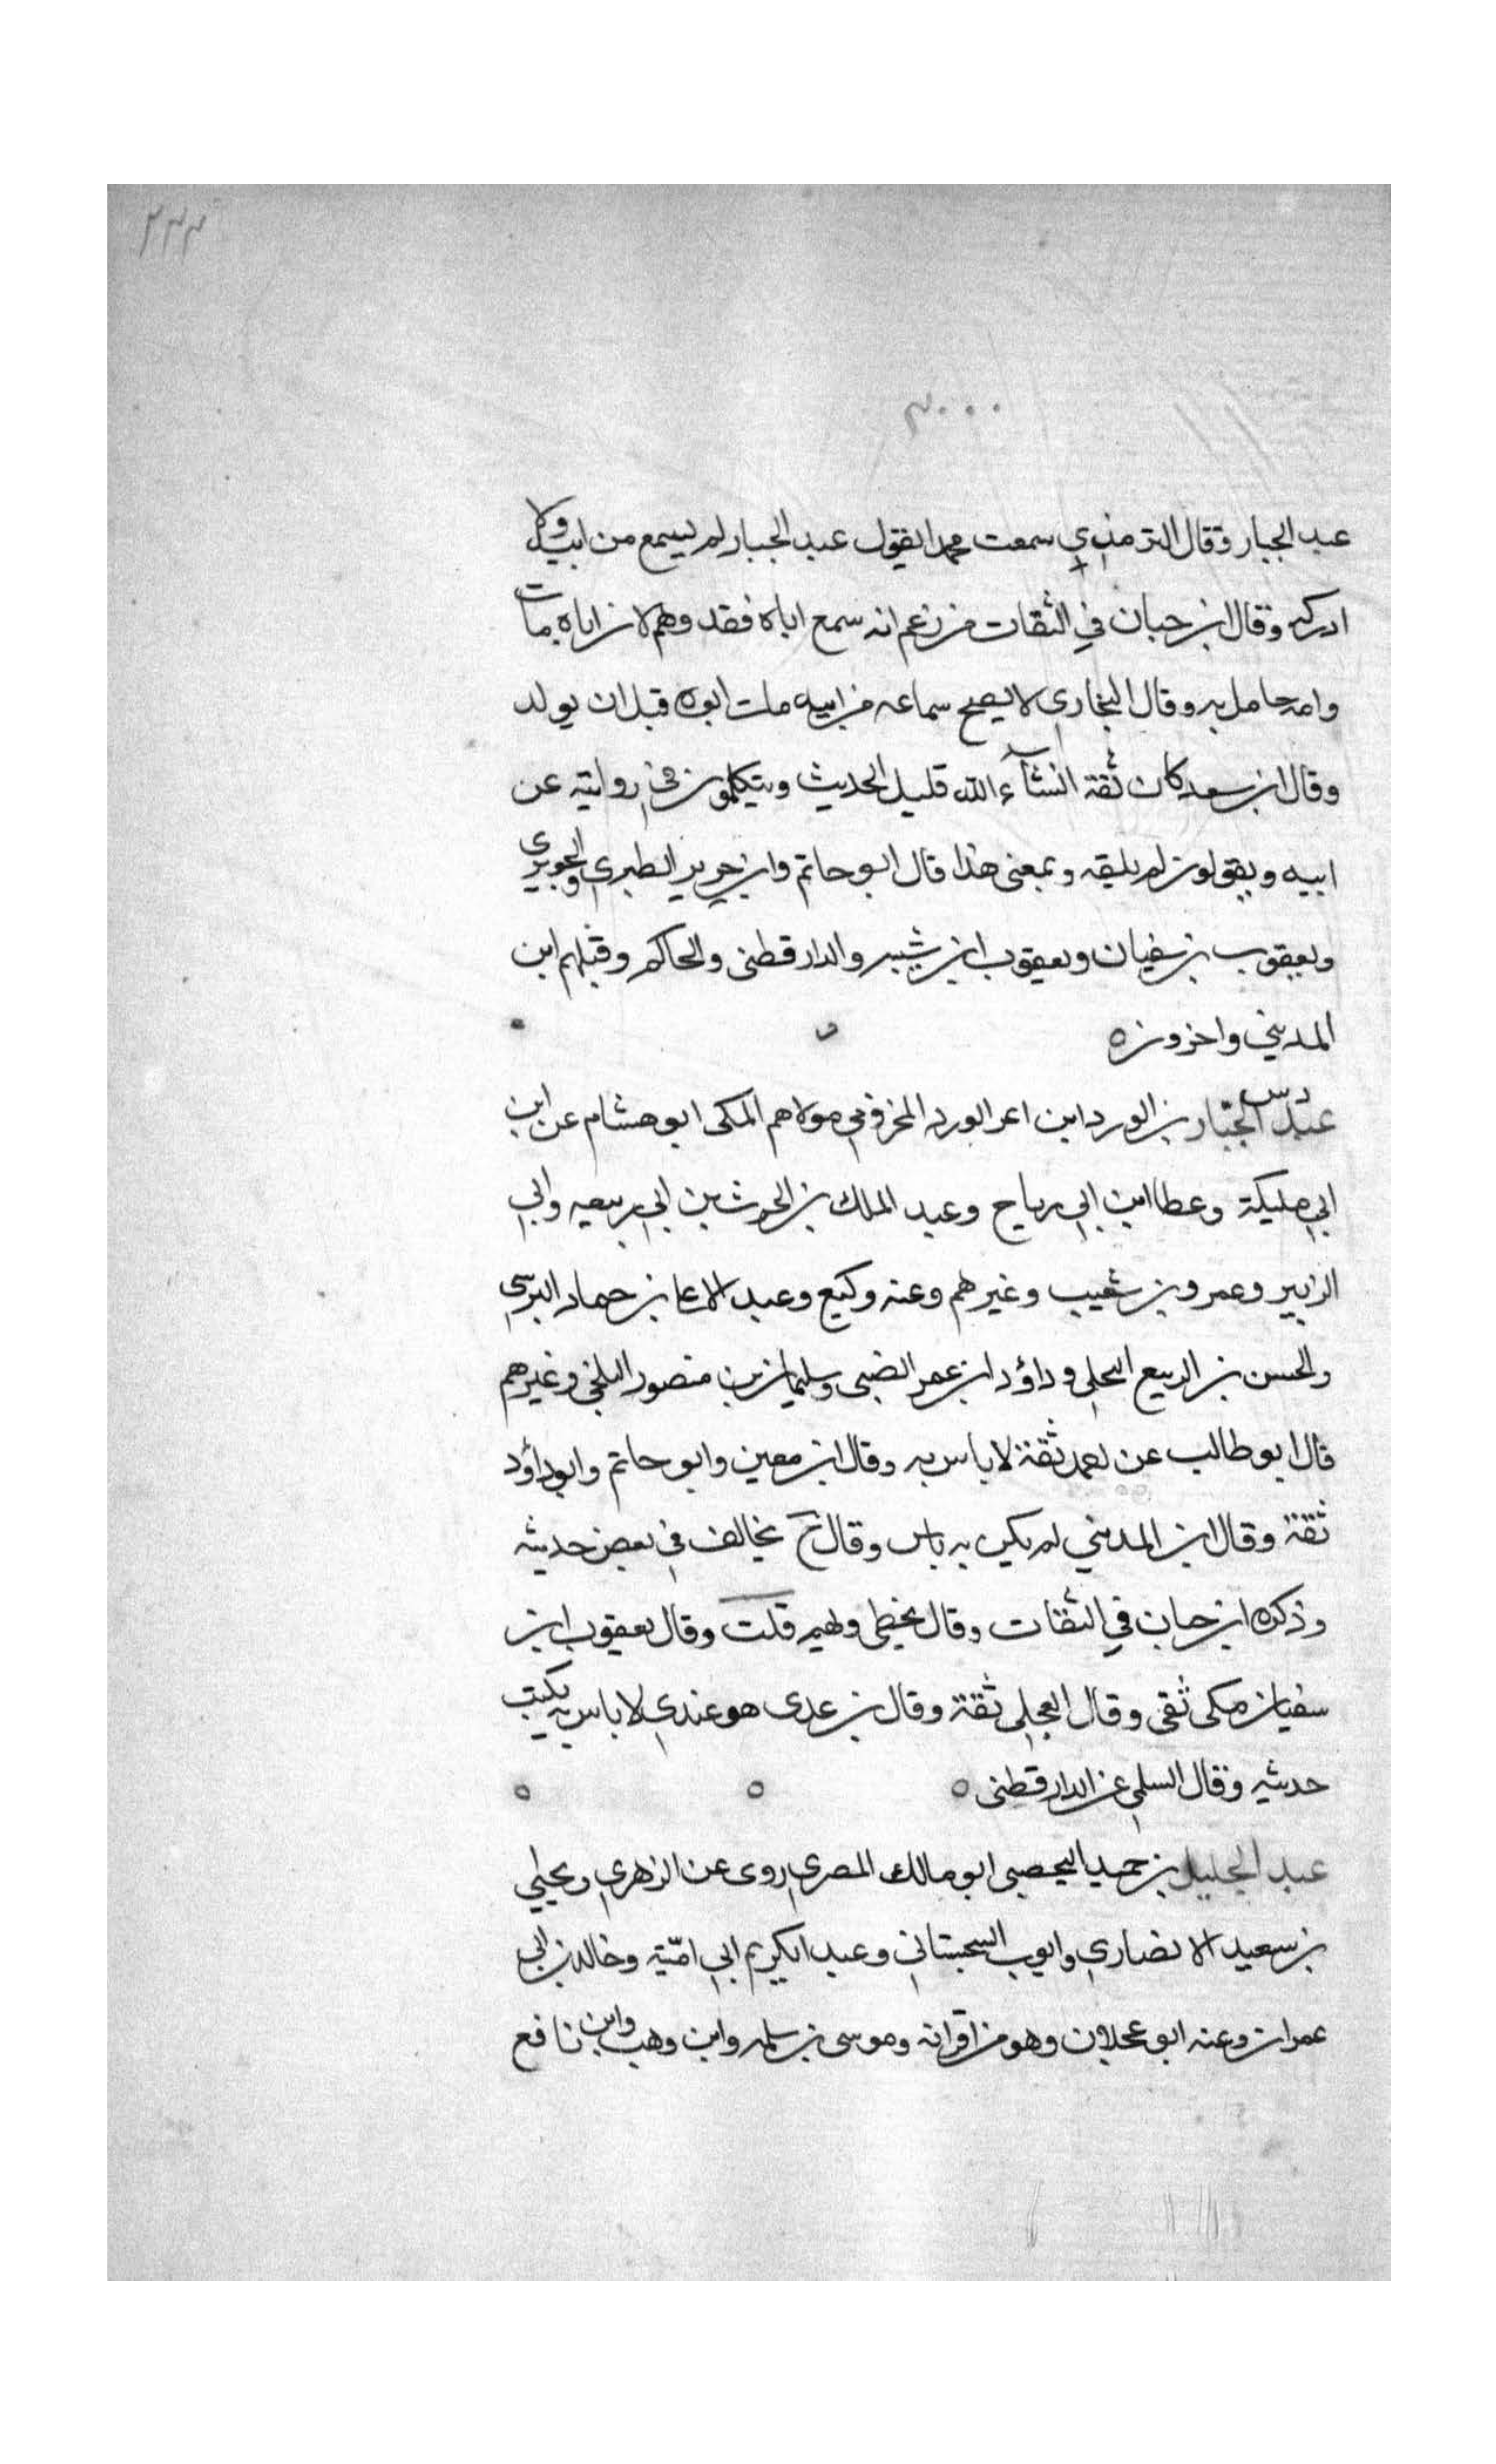 ٢٣٣
٣٠٠٠
عبد الجبار وقال الترمذي سمعت محمدا يقول عبد الجبار لم يسمع من ابيه ولا
ادركه وقال ابن حبان في الثقات من زعم انه سمع اباه فقد وهم لان اباه مات
وامه حامل به وقال البخاري لا يصح سماعه من ابيه مات ابوه قبل ان يولد
وقال ابن سعد كان ثقة انشآء الله قليل الحديث ويتكلمون في روايته عن
ابيه ويقولون لم يلقه وبمعنى هذا قال ابو حاتم وابن جرير الطبري والجويري
ويعقوب بن سفيان ويعقوب ابن شيبه والدارقطنى والحاكم وقبلهم ابن
المديني واخرون ه
دس
عبد الجبار بن الورد ابن اعر الورد المخزومي مولاهم المكى ابو هشام عن ابن
ابي مليكة وعطا ابن ابي رباح وعبد الملك بن الحرث بن ابي ربيعه وابي
الزبير وعمرو بن شعيب وغيرهم وعنه وكيع وعبد الاعا بن حماد النرسي
والحسن بن الربيع البجلي وداؤد ابن عمر الضبى وسليمان بن منصور البلخي وغيرهم
قال ابو طالب عن احمد ثقة لا باس به وقال ابن معين وابو حاتم وابو داؤد
ثقة وقال ابن المديني لم يكن به باس وقال خ يخالف في بعض حديثه
وذكره ابن حبان في الثقات وقال يخطي ويهم قلت وقال يعقوب ابن
سفيان مكى ثقى وقال العجلي ثقة وقال بن عدى هو عندي لا باس به يكتب
حديثه وقال السلمي عن الدارقطنى ه ه ه
عبد الجليل بن حميد اليحصبى ابو مالك المصري روى عن الزهري ويحيي
بن سعيد الانصاري وايوب السجستاني وعبد الكريم ابي امية وخالد بن ابي
عمران وعنه ابو عجلان وهو من اقرانه وموسى بن سلمه وابن وهب وابن نافع